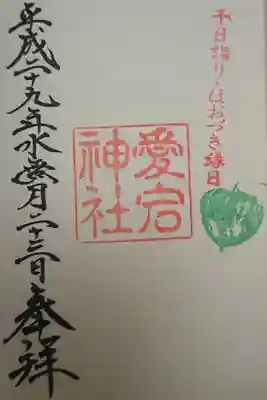 千日詣り・ほおづき縁日
愛宕
神社
平成二十九年水無月二十三日
奉拝